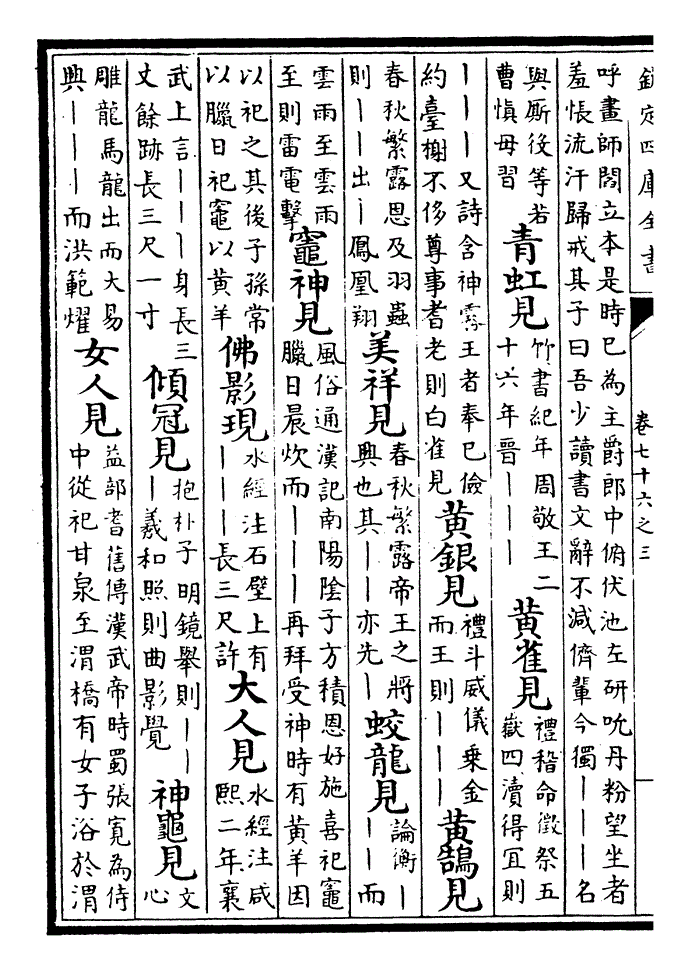 欽定四庫全書
卷七十六之三
呼畫師閻立本是時已為主爵郎中俯伏池左研吮丹粉望坐者
羞悵流汗歸戒其子曰吾少讀書文辭不減儕輩今獨丨丨丨名
與厮役等若
曹慎毋習
青虹見
竹書紀年周敬王二
十六年晉丨丨丨
黄雀見
禮稽命徵祭五
嶽四瀆得宜則
丨丨丨又詩含神霧王者奉已儉
約臺榭不侈尊事耆老則白雀見
黄銀見
禮斗威儀乗金
而王則丨丨丨
黄鵠見
春秋繁露恩及羽蟲
則丨丨出丨鳳凰翔
美祥見
春秋繁露帝王之將
興也其丨丨亦先丨
蛟龍見
論衡丨
丨丨而
雲雨至雲雨
至則雷電擊
竈神見
風俗通漢記南陽陰子方積恩好施喜祀竈
臘日晨炊而丨丨丨再拜受神時有黄羊因
以祀之其後子孫常
以臘日祀竈以黄羊
佛影現
水經注石壁上有
丨丨丨長三尺許
大人見
水經注咸
熙二年襄
武上言丨丨丨身長三
丈餘跡長三尺一寸
傾冠見
抱朴子明鏡舉則丨丨
丨羲和照則曲影覺
神龜見
文
心
雕龍馬龍出而大易
興丨丨丨而洪範燿
女人見
益部耆舊傳漢武帝時蜀張寛為侍
中從祀甘泉至渭橋有女子浴於渭